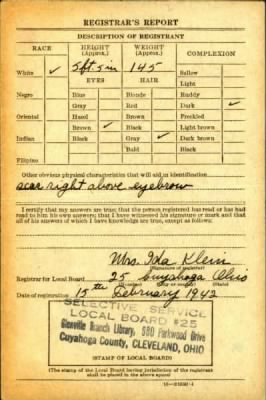 REGISTRAR'S REPORT
DESCRIPTION OF REGISTRANT
RACE HEIGHT (Approx.) WEIGHT (Approx.) COMPLEXION
White ✓ 5 ft. 5 in 145 Sallow
EYES HAIR Light
Negro Blue Blonde Ruddy
Gray Red Dark ✓
Oriental Hazel Brown Freckled
Brown ✓ Black Light brown
Indian Black Gray ✓ Dark brown
Bald Black
Filipino
Other obvious physical characteristics that will aid in identification
scar right above eyebrow
I certify that my answers are true; that the person registered has read or has had
read to him his own answers; that I have witnessed his signature or mark and that
all of his answers of which I have knowledge are true, except as follows:
Mrs. Ida Klein
(Signature of registrar)
Registrar for Local Board 25 Cuyahoga Ohio
(State)
Date of registration 15th February 1942
SELECTIVE SERVICE
LOCAL BOARD #25
Glenville Branch Library, 980 Parkwood Drive
Cuyahoga County, CLEVELAND, OHIO
(STAMP OF LOCAL BOARD)
(The stamp of the Local Board having jurisdiction of the registrant
shall be placed in the above space)